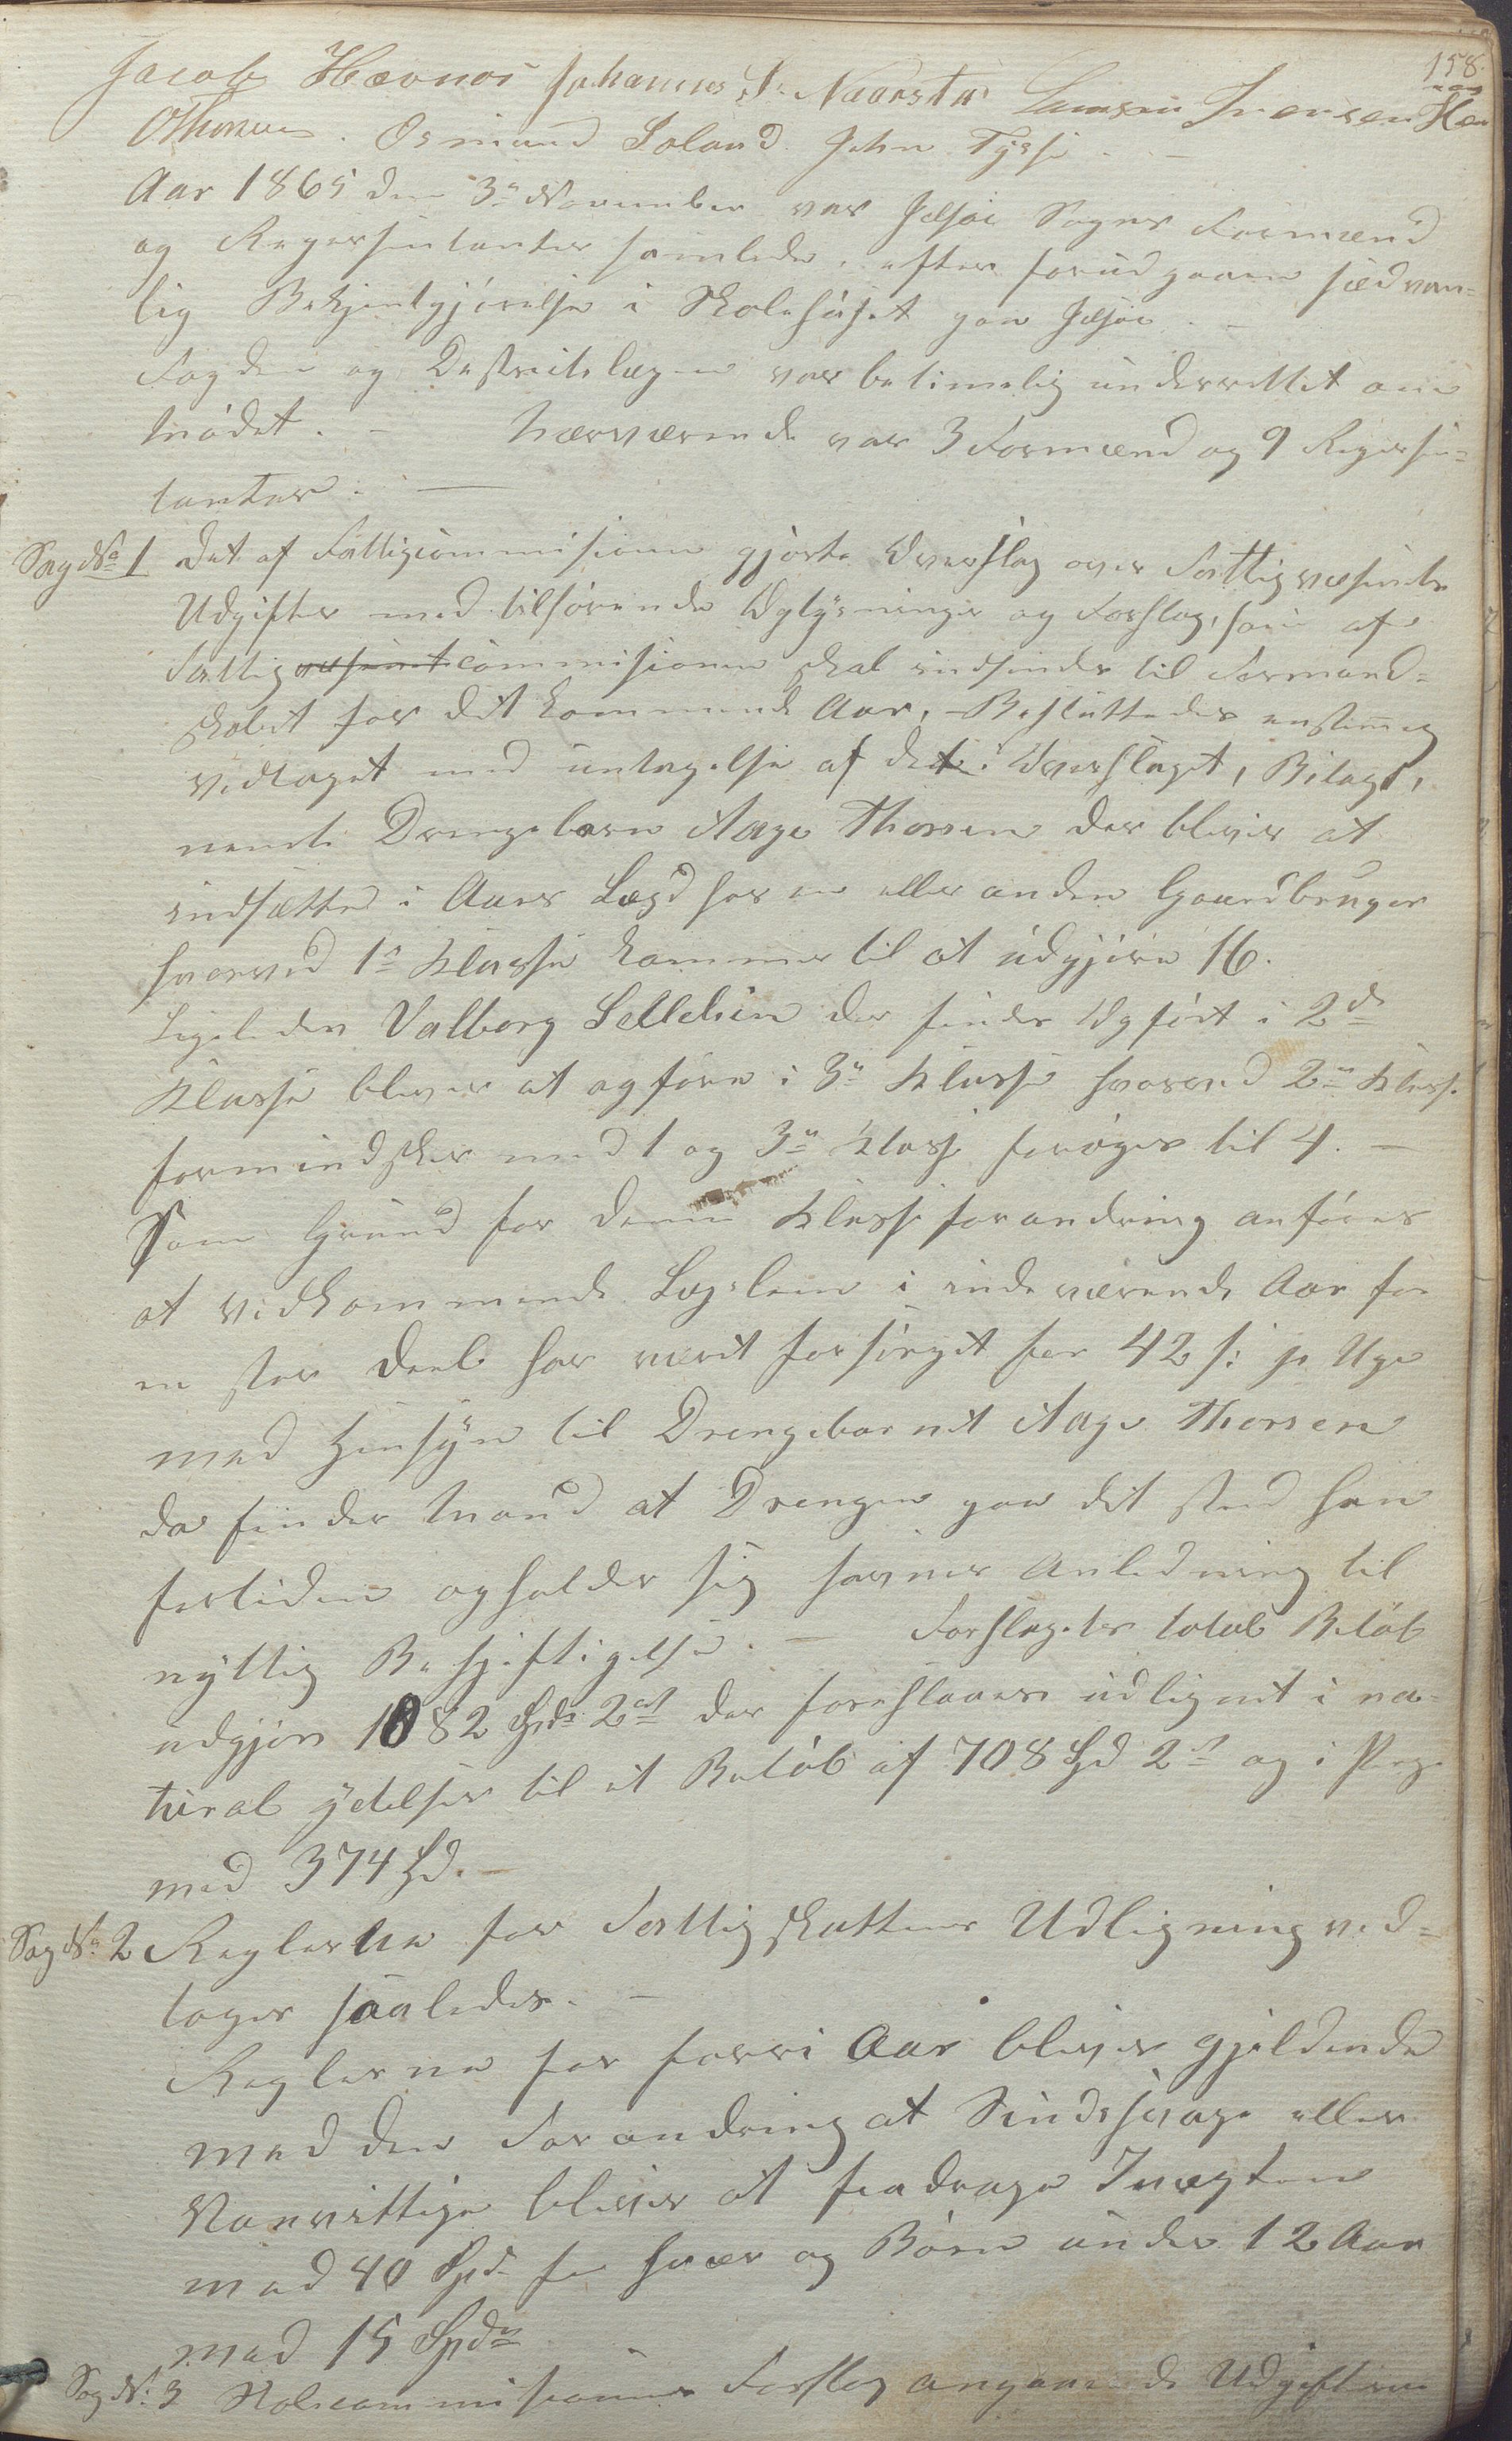 158.
Jacob Hævnoi Johannes J. Naarstad Lauren Iversen Hæv
Othonius. Osmund Soland. John Tysse. –
Aar 1865 den 3die November var Jelsøe Sogns Formænd
og Repræsentanter samlede, efter forudgaaen sædvan=
lig Bekjentgjørelse i Skolehuset paa Jelsøe. –
Fogden og Destriktslægen var betimelig underrettet om
Mødet. – Nærværende var 3 Formænd og 9 Repræsen=
tanter. —
Sag No 1 Det af Fattigcommisionen gjorte Overslag over Fattigvæsenets
Udgifter med tilhørende Oplysninger og Forslag, som af
Fattigvæsenetcommisionen skal indsendes til Formand=
skabet for det kommende Aar, – Besluttedes enstemig
vedtaget med untagelse af det i Overslaget, Bilag 1,
nævnte Drengebarn Aage Thorsen der bliver at
indsætte i Aars Lægd hos en eller anden Gaardbruger
hvorved 1ste Klasse kommer til at udgjøre 16.
Ligeledes Valborg Sellelien der findes Opført i 2den
Klasse bliver at opføre i 3die Klasse hvorved 2den Klasse
formindskes med 1 og 3die Klasse forøges til 4. –
Som Grund for denne Klasseforandring anføres
at vedkommende Lægslem i indeværende Aar for
en stor Deel har været forsørget for 42 s: pr Uge
med Hensyn til Drengebarnet Aage Thorsen
da finder Mand at Drengen paa det sted han
fortiden opholder sig savner Anledning til
nyttig Beskjeftigelse. – Forslagets total Beløb
udgjør 1082 Spd: 2ort der foreslaaes udlignet i na=
tural ydelser til et Beløb af 708 Spd 2ort og i Penge
med 374 Spd. –
Sag No 2 Reglerne for Fattigskattens Udligning ved=
toges saaledes. –
Reglerne for forri Aar bliver gjeldende
med den Forandring at Sindssvage eller
Vanvittige bliver at fradrage Inægten
med 40 Spd for hver og Børn under 12 Aar
med 15 Spd
Sag No: 3 Skolecommisionens Forslag angaaende Udgifterne